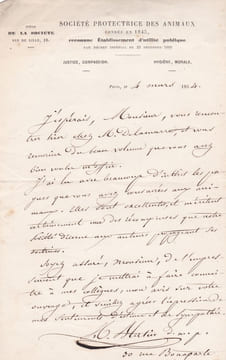 SIÈGE
DE LA SOCIÉTÉ
RUE DE LILLE, 19.
SOCIÉTÉ PROTECTRICE DES ANIMAUX
FONDÉE EN 1845,
reconnue Établissement d'utilité publique
PAR DÉCRET IMPÉRIAL DU 22 DÉCEMBRE 1860
JUSTICE, COMPASSION.
HYGIÈNE, MORALE.
Paris, le 4 mars 18
J'espérais, Monsieur, vous rencon
trer hier chez Mr Delamarre et vous
remercier du beau volume que vous avez
bien voulu m'offrir.
J'ai lu avec beaucoup d'intérêt les pa
ges que vous avez consacrées aux ani
maux. Elles sont excellentes, et méritent
certainement une des récompenses que notre
Société décerne aux auteurs
Soyez assuré, Monsieur, de l'empres
sement que je mettrai à faire connaître
à mes collègues, mon avis sur votre
ouvrage, et veuillez agréer l'expression de
mes sentiments d'estime et de sympathie
30 rue Bonaparte